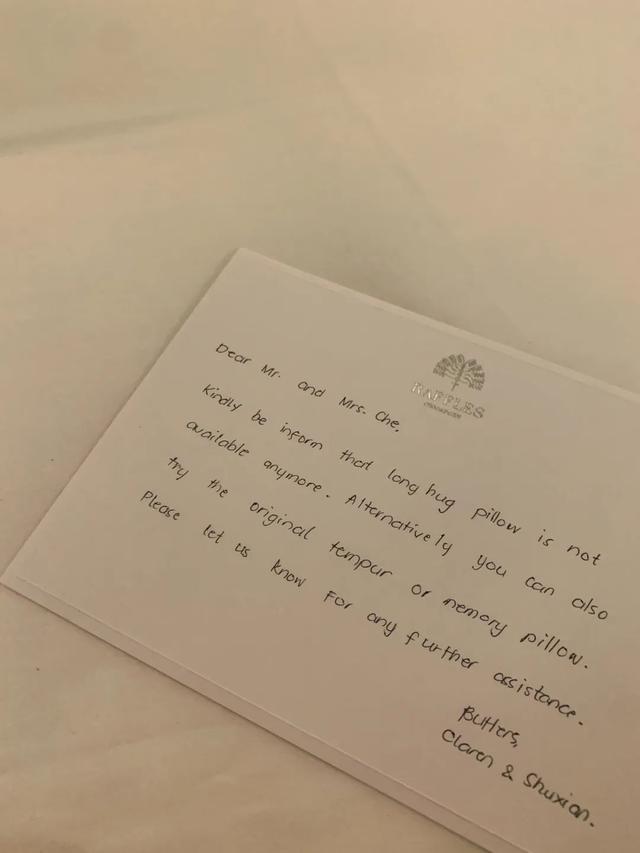 RAFFLES
Dear Mr. and Mrs. Che,
Kindly be inform that long hug pillow is not
available anymore. Alternatively you can also
try the original tempur or memory pillow.
Please let us know For any further assistance.
Butlers,
Claren & Shuxian.